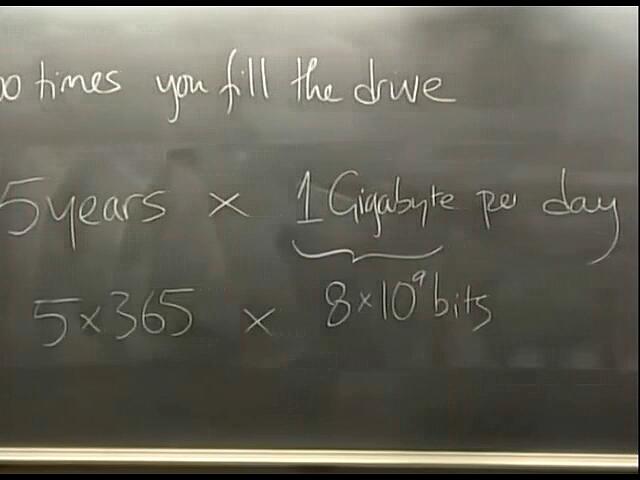 times you fill the drive
5 years × 1 Gigabyte per day
5×365 × 8×10⁹ bits